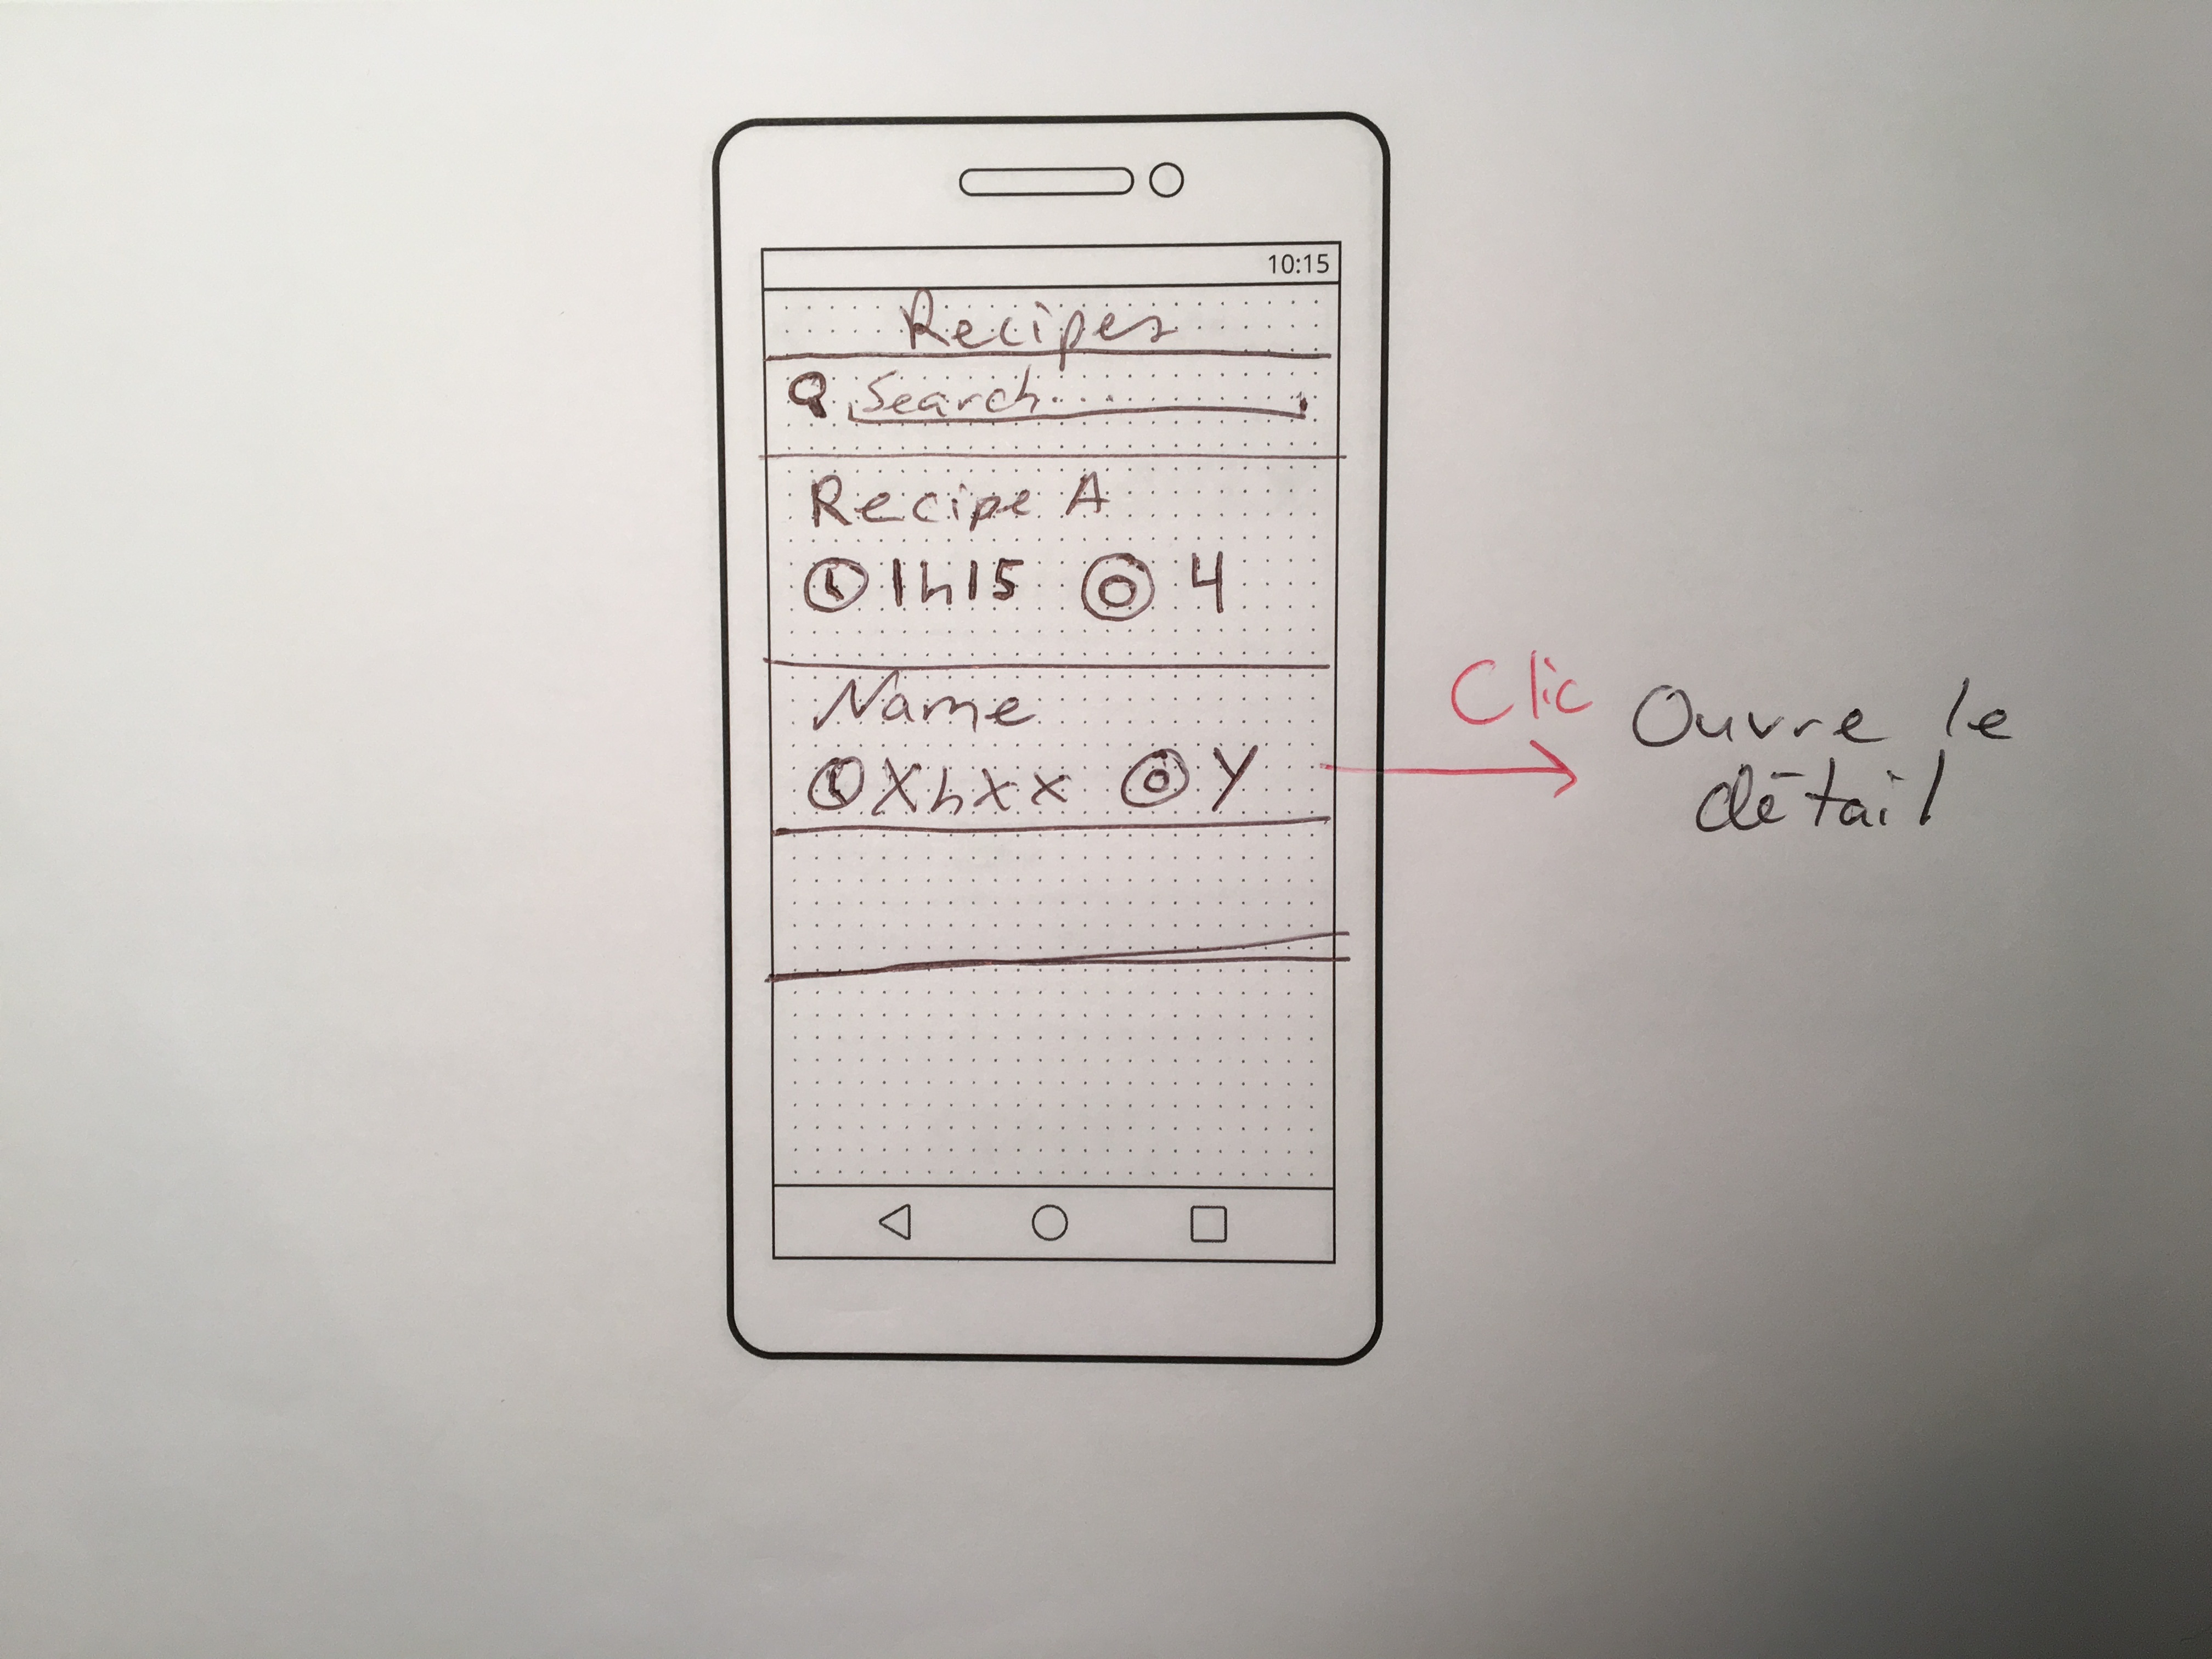 10:15
Recipes
Search...
Recipe A
1h15 4
Name
Xhxx Y
Clic
Ouvre le
détail